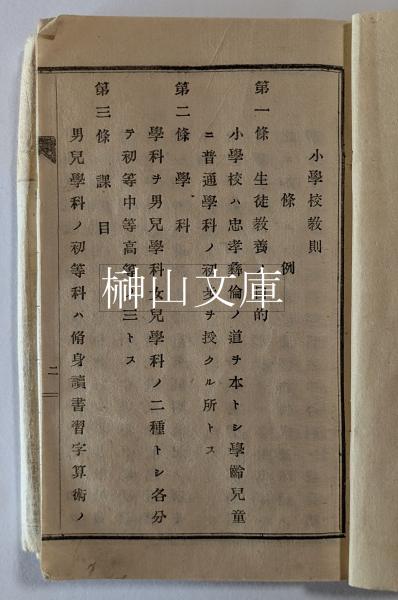 小學校教則
條例
第一條 生徒教養ノ目的
小學校ハ忠孝彜倫ノ道ヲ本トシ學齡兒童
ニ普通學科ノ初歩ヲ授クル所トス
第二條 學科
學科ヲ男兒學科女兒學科ノ二種トシ各分
テ初等中等高等ノ三トス
第三條 課目
男兒學科ノ初等科ハ脩身讀書習字算術ノ
二
榊山文庫